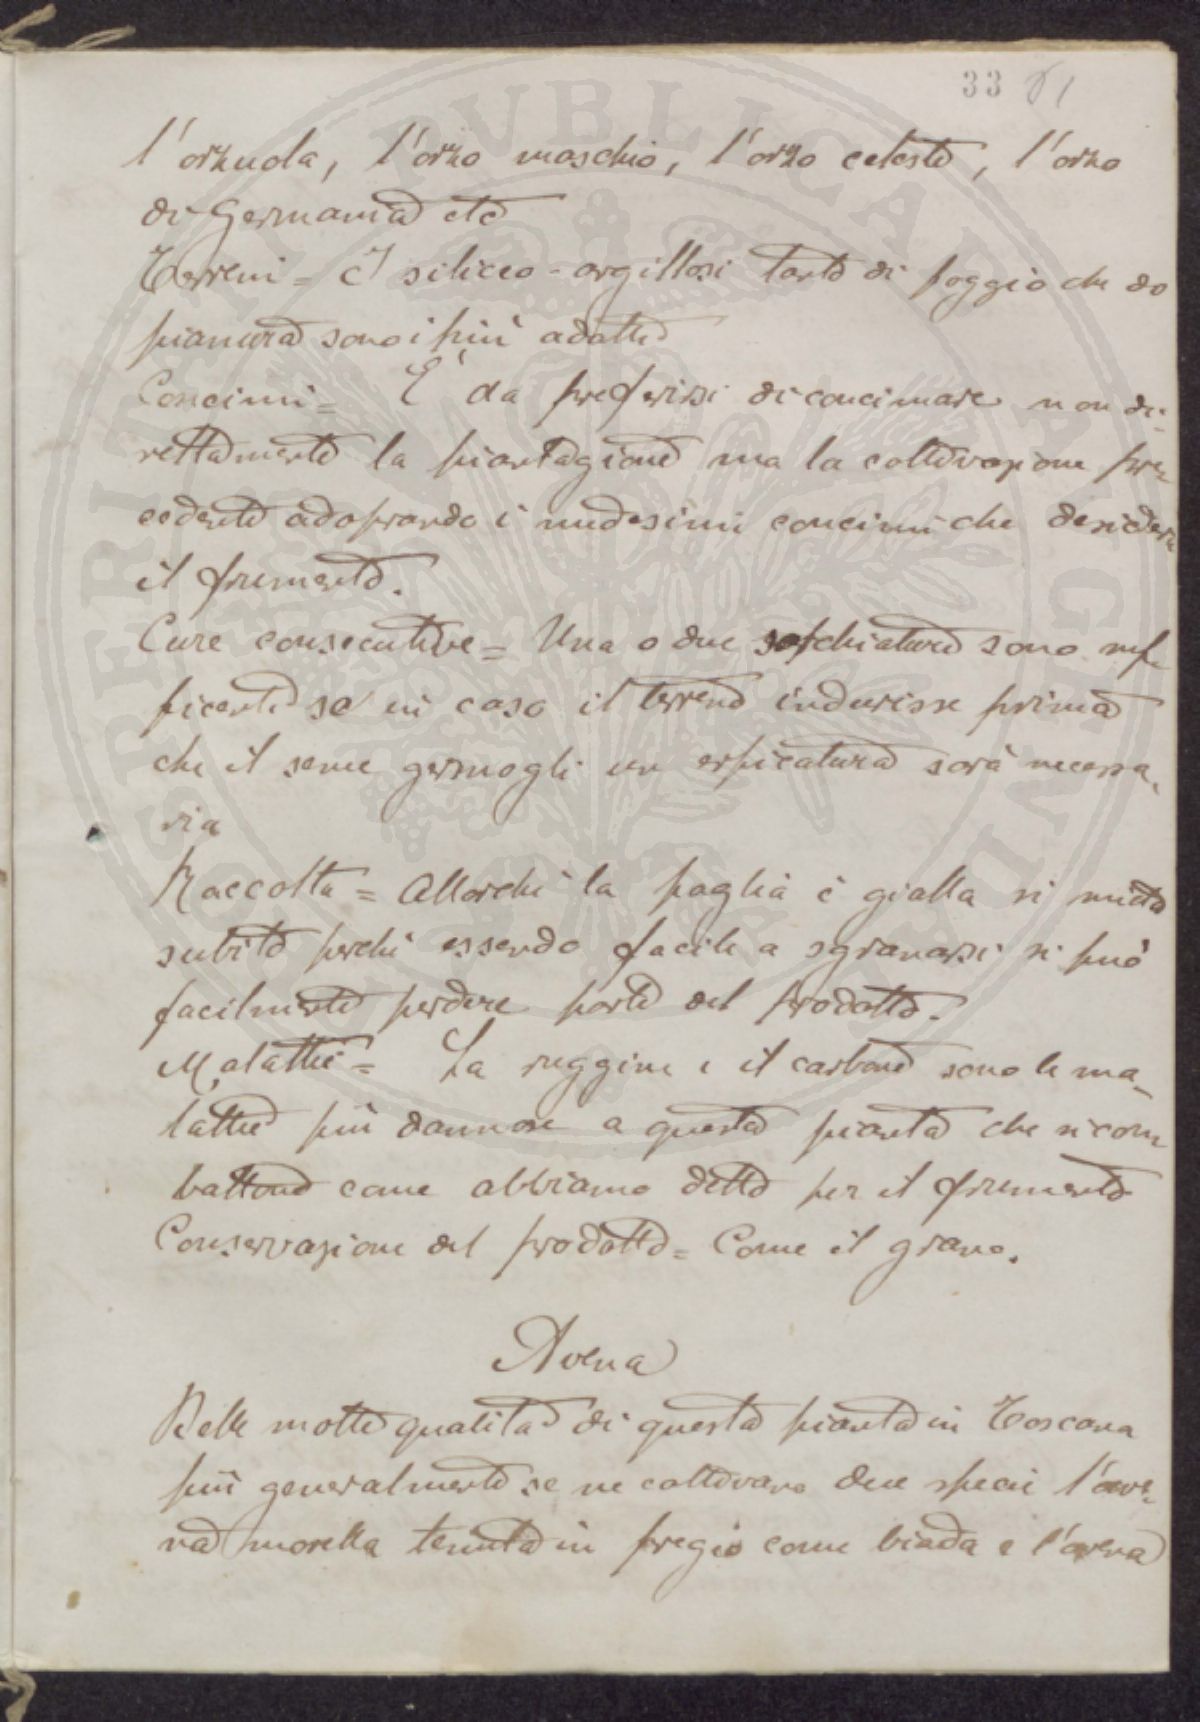 33 81
l'orzuola, l'orzo maschio, l'orzo celeste, l'orzo
di Germania etc
Terreni = I siliceo-argillosi tanto di poggio che di
pianura sono i più adatti
Concimi = È da preferirsi di concimare non di-
rettamente la piantagione ma la coltivazione pre-
cedente adoprando i medesimi concimi che desidera
il frumento.
Cure consecutive = Una o due sarchiature sono suf-
ficenti se in caso il terreno indurisse prima
che il seme germogli un erpicatura sarà necessa-
ria
Raccolta = Allorchè la paglia è gialla si miete
subito perchè essendo facile a sgranarsi si può
facilmente perdere parte del prodotto.
Malattie = La ruggine e il carbone sono le ma-
lattie più dannose a questa pianta che si com-
battono come abbiamo detto per il frumento
Conservazione del prodotto = Come il grano.
Avena
Delle molte qualità di questa pianta in Toscana
più generalmente se ne coltivano due specie l'ave-
na morella tenuta in pregio come biada e l'avena
PUBLICAE AGENTIUM
PROSPERITATI